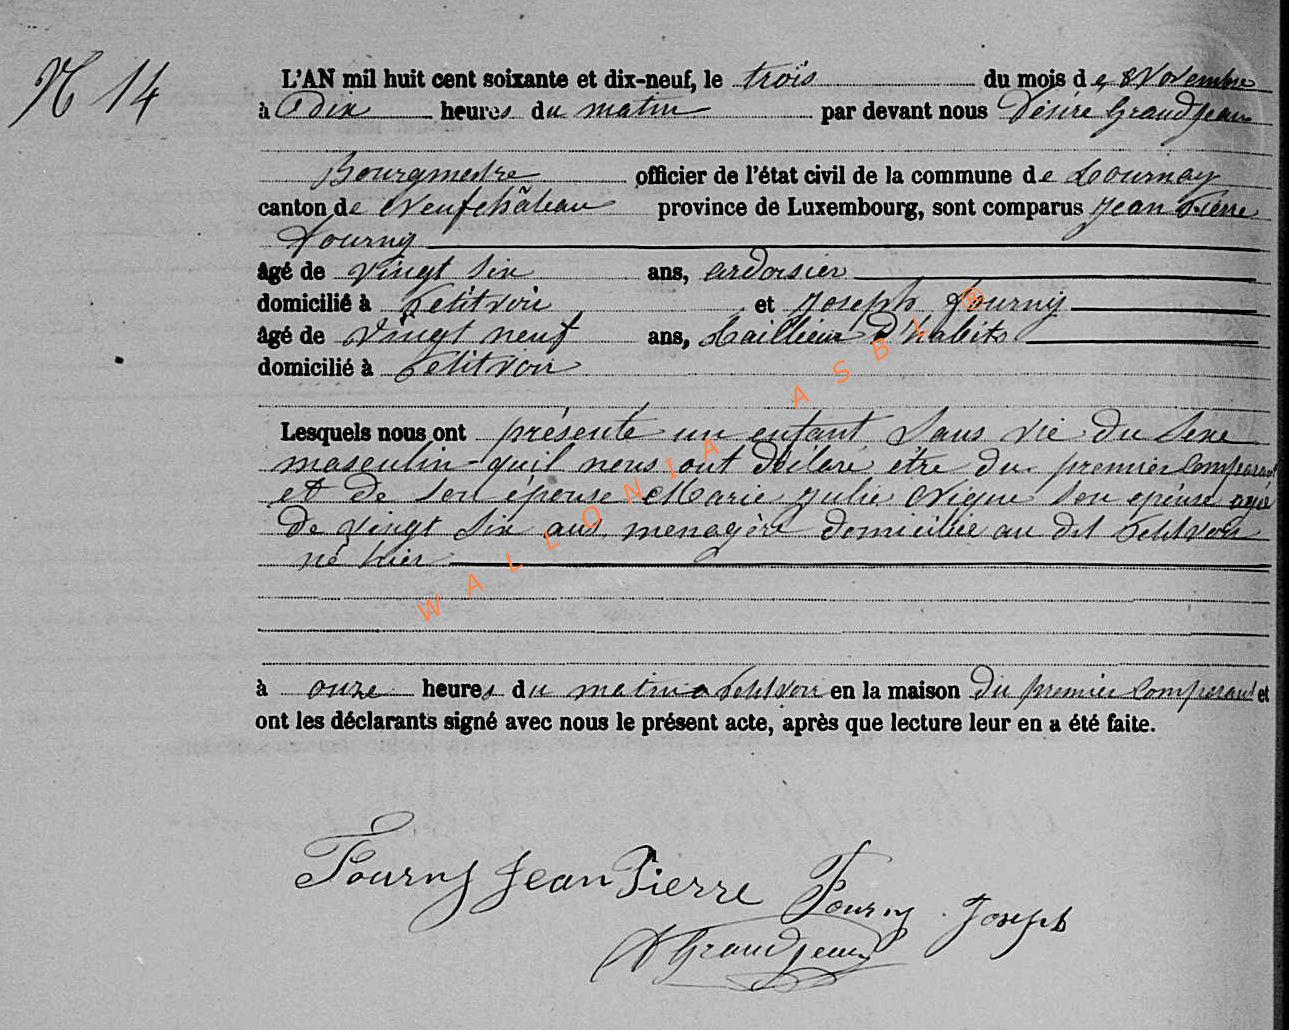 N 14
L'AN mil huit cent soixante et dix-neuf, le trois du mois de 8 Novembre
à dix heures du matin par devant nous Désiré Grandjean
Bourgmestre officier de l'état civil de la commune de Tournay
canton de Neufchâteau province de Luxembourg, sont comparus Jean Pierre
Fourny
âgé de vingt six ans, ardoisier
domicilié à Petitvoir et Joseph Fourny
âgé de vingt neuf ans, tailleur d'habits
domicilié à Petitvoir
Lesquels nous ont présenté un enfant sans vie du sexe
masculin qu'il nous ont déclaré être du premier comparant
et de son épouse Marie Julie son épouse agé
de vingt six ans, menagère domiciliée au dit Petitvoir
né hier
à onze heures du matin a Petitvoir en la maison du premier comparant et
ont les déclarants signé avec nous le présent acte, après que lecture leur en a été faite.
Fourny Jean Pierre Fourny Joseph
D Grandjean
WALLONIA ASBL ®